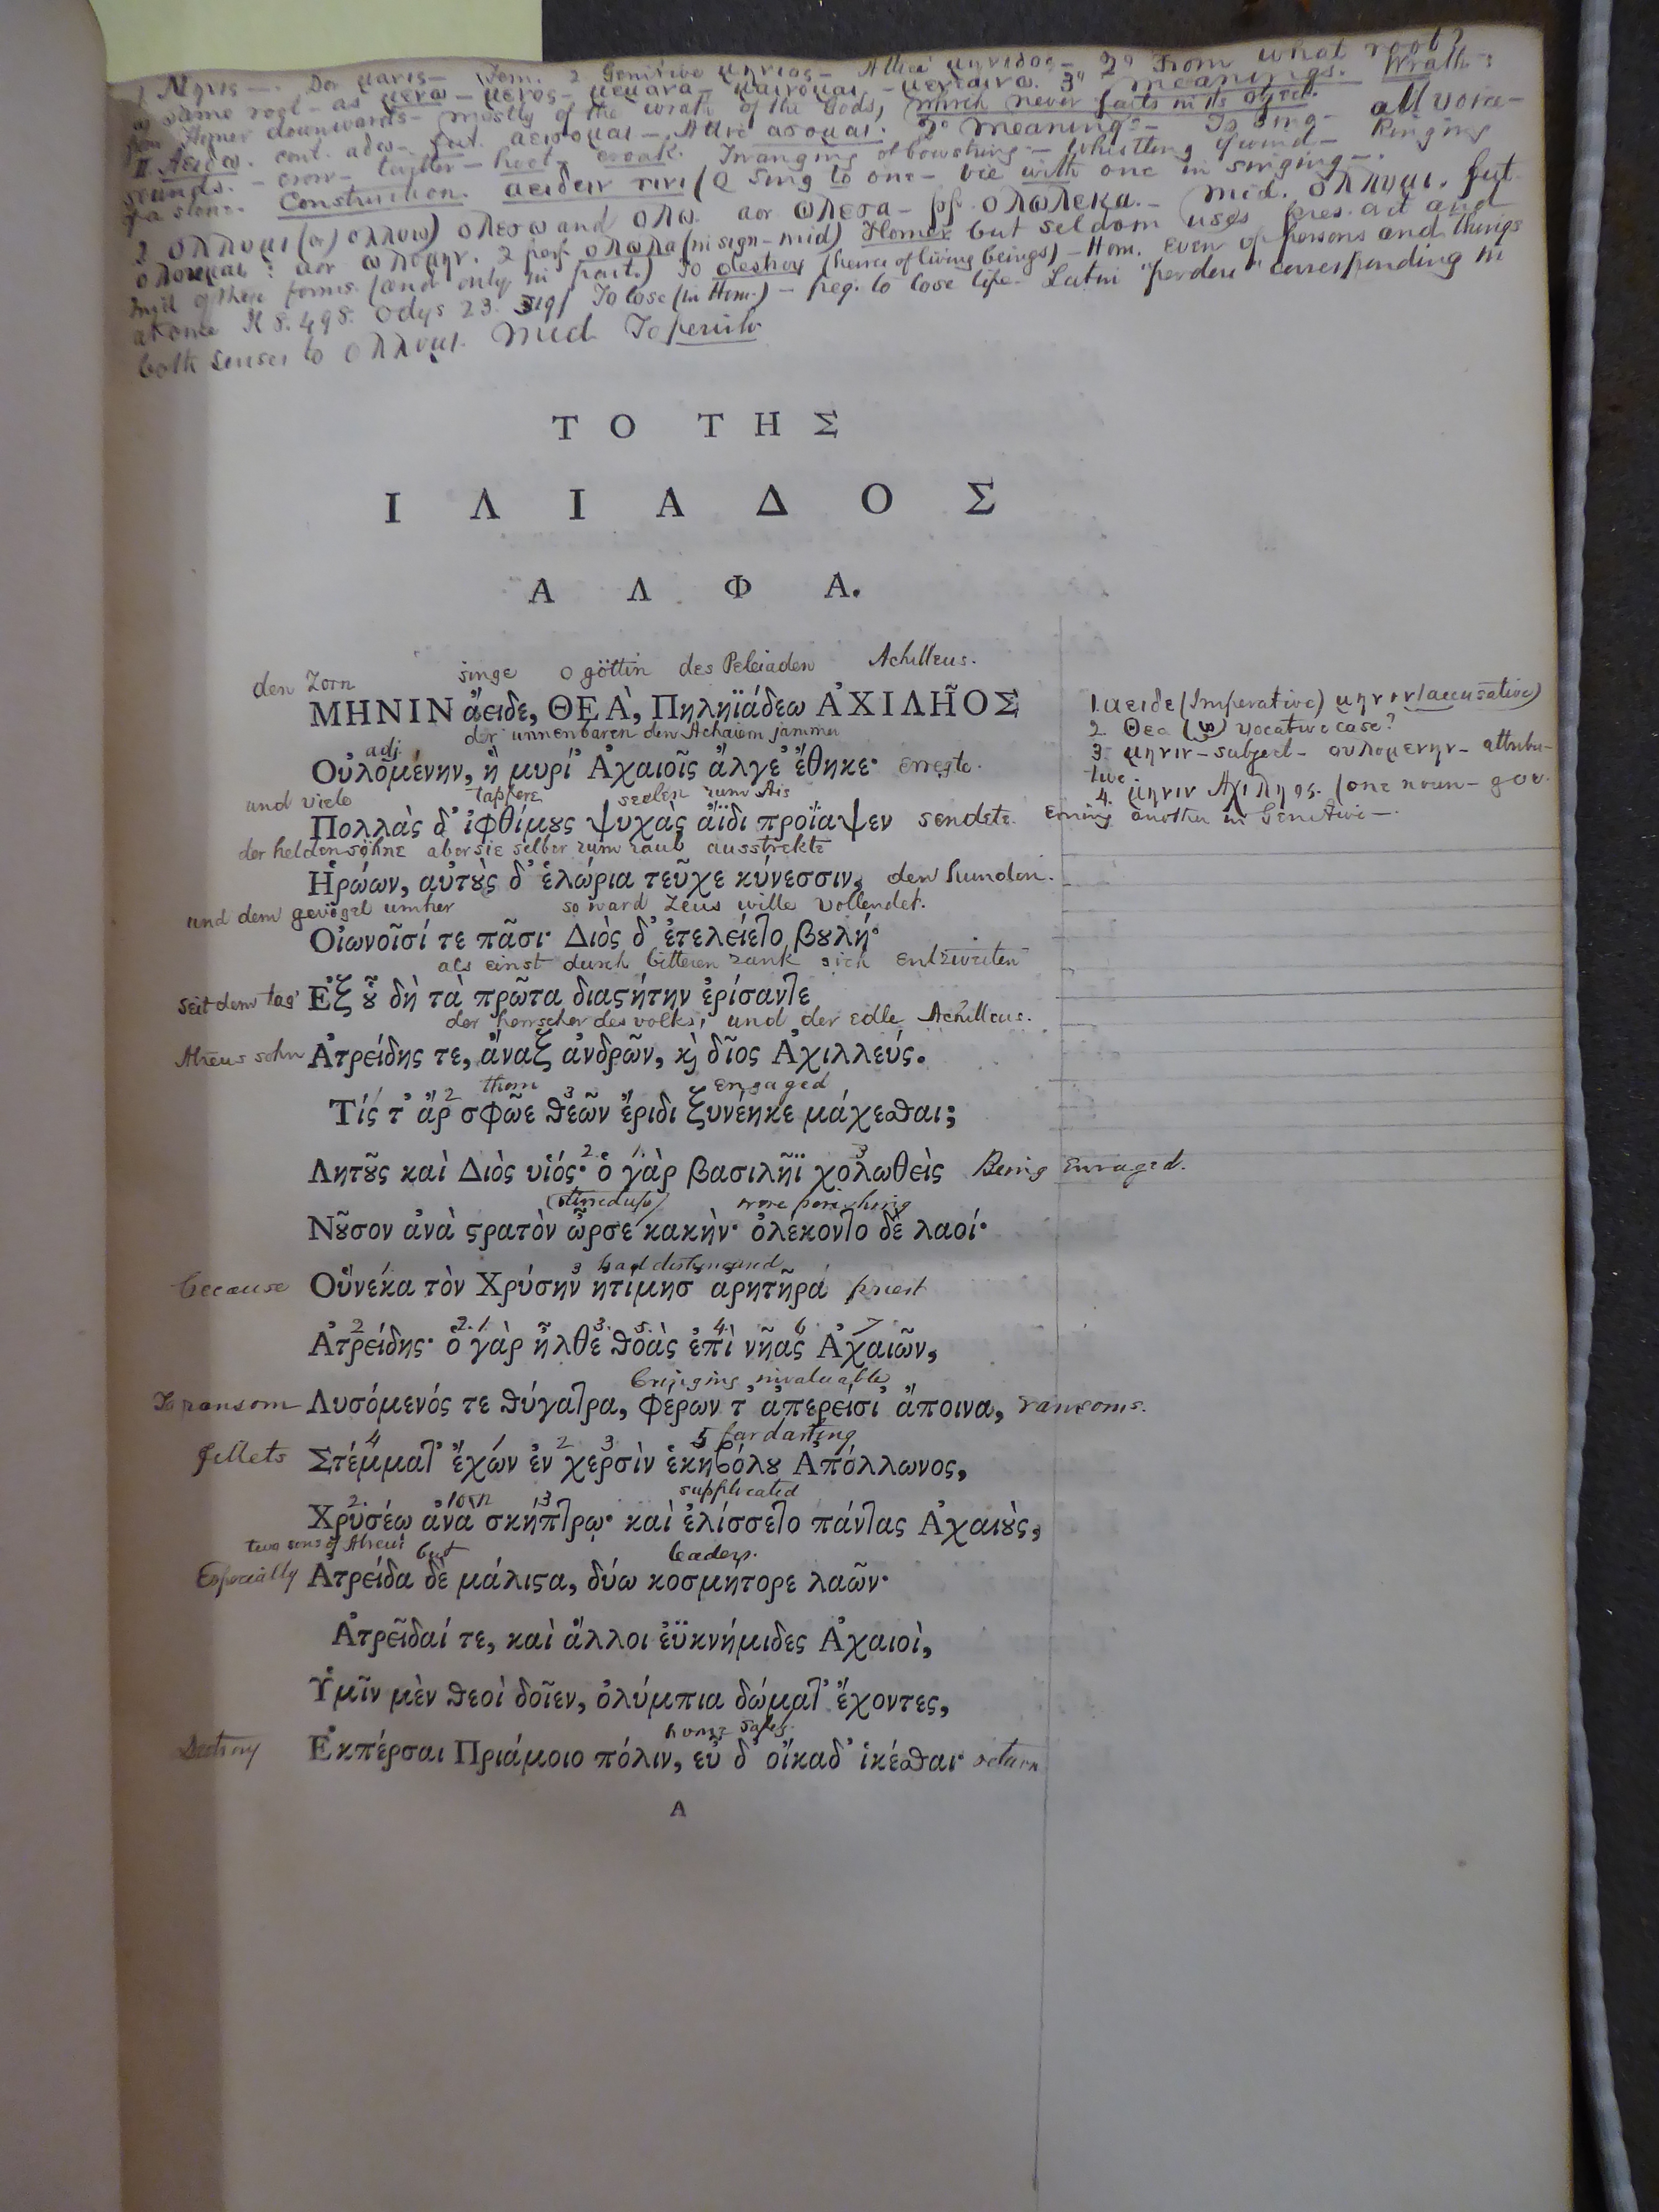 1 Μηνις —. Dor μανις — Fem. 2 Genitive μηνιος — Attic μηνιδος — 2º From what root?
as same root — as μενω — μενος — μεμαα — μαινομαι — μενεαινω. 3º meanings. Wrath:
from Homer downwards — mostly of the wrath of the Gods, which never fails in its object.
II. Αειδω. cont. αδω — fut. αεισομαι — Attic ασομαι. 2º meanings — To Sing — all voice —
sounds. — crow — twitter — hoot — croak. Twanging of bowstring — whistling of wind — Ringing
of a stone. Construction. αειδειν τινι (to Sing to one — vie with one in singing —.
2 ολλυμι (or) ολλυω) ολεσω and ολω. aor ωλεσα — pf. ολωλεκα. — mid. ολλυμι. fut.
ολουμαι: aor ωλομην. 2 perf ολωλα (in sign — mid) Homer but seldom uses pres. act and
mid of these forms (and only in part.) To destroy (hence of living beings) — Hom. even of persons and things
at once Il 8. 498. Odys 23. 319) To lose (in Hom.) — freq. to lose life. Latin "perdere" corresponding in
both senses to ολλυμι. Mid To perish
ΤΟ ΤΗΣ
ΙΛΙΑΔΟΣ
ΑΛΦΑ.
den Zorn singe o göttin des Peleiaden Achilleus.
ΜΗΝΙΝ ἄειδε, ΘΕᾺ, Πηληϊάδεω ἈΧΙΛΗ͂ΟΣ
1. αειδε (Imperative) μηνιν (accusative)
der unnenbaren den Achaiern jammer
2. Θεα (ω) vocative case?
adj.
Οὐλομένην, ἣ μυρί᾽ Ἀχαιοῖς ἄλγε᾽ ἔθηκε· erregte.
3. μηνιν — subject — ουλομενην — attribu-
tive.
und viele tapfere seelen zum Ais
4. μηνιν Αχιληος. (one noun — gov-
Πολλὰς δ᾽ ἰφθίμȣς ψυχὰς ἄϊδι προΐαψεν sendete. erning another in Genitive —.
der heldensöhne aber sie selber zum raub ausstrekte
Ἡρώων, αὐτȣ̀ς δ᾽ ἑλώρια τεῦχε κύνεσσιν, den hunden.
und dem gevögel umher so ward Zeus wille vollendet.
Οἰωνοῖσί τε πᾶσι· Διὸς δ᾽ ἐτελείετο βȣλή·
als einst durch bitteren zank sich entzweiten
seit dem tag' Ἐξ ȣ̃ δὴ τὰ πρῶτα διαϛήτην ἐρίσαντε
der herrscher des volks, und der edle Achilleus.
Atreus sohn Ἀτρείδης τε, ἄναξ ἀνδρῶν, ϗ δῖος Ἀχιλλεύς.
2 them 3 engaged
Τίς τ᾽ ἄρ σφῶε ϑεῶν ἔριδι ξυνέηκε μάχεσϑαι;
2. 1. 3
Λητȣ͂ς καὶ Διὸς υἱός· ὁ γὰρ βασιλῆϊ χολωθεὶς Being Enraged.
(stirred up) were perishing
Νȣ͂σον ἀνὰ ϛρατὸν ὦρσε κακὴν· ὀλέκοντο δὲ λαοί·
3 had dishonoured
because Οὕνεκα τὸν Χρύσην ἠτίμησ᾽ ἀρητῆρα priest
2 2. 1 3. 5. 4. 6 7
Ἀτρείδης· ὁ γὰρ ἦλθε ϑοὰς ἐπὶ νῆας Ἀχαιῶν,
bringing invaluable
To ransom Λυσόμενός τε ϑύγατρα, φέρων τ᾽ ἀπερείσι᾽ ἄποινα, ransoms.
4 1 2 3 5 far darting
fillets Στέμματ᾽ ἔχων ἐν χερσὶν ἑκηϐόλȣ Ἀπόλλωνος,
2. 1 on 3 supplicated
Χρυσέῳ ἀνὰ σκήπτρῳ· καὶ ἐλίσσετο πάντας Ἀχαιȣ̀ς,
two sons of Atreus but leaders.
Especially Ἀτρείδα δὲ μάλιϛα, δύω κοσμήτορε λαῶν·
Ἀτρεῖδαί τε, καὶ ἄλλοι ἐϋκνήμιδες Ἀχαιοὶ,
Ὑμῖν μὲν ϑεοὶ δοῖεν, ὀλύμπια δώματ᾽ ἔχοντες,
home safely.
Destroy Ἐκπέρσαι Πριάμοιο πόλιν, εὖ δ᾽ οἴκαδ᾽ ἱκέσϑαι· return
A